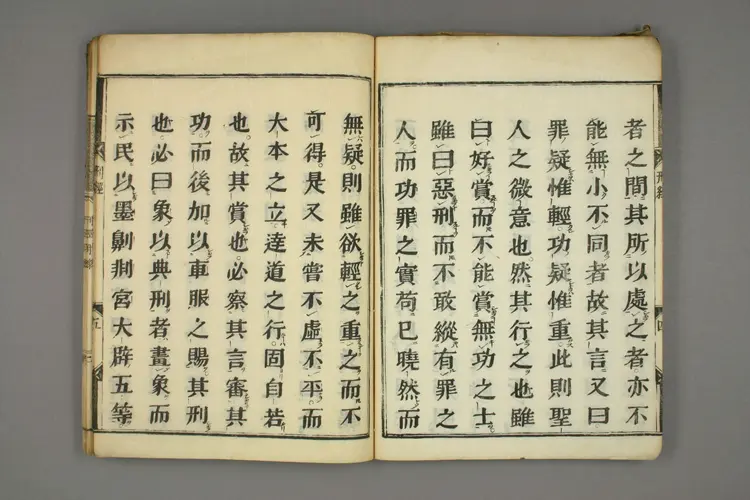 者之間其所以處之者亦不
能無小不同者故其言又曰
罪疑惟輕功疑惟重此則聖
人之微意也然其行之也雖
曰好賞而不能賞無功之士
雖曰惡刑而不敢縱有罪之
人而功罪之實苟已曉然而
無疑則雖欲輕之重之而不
可得是又未嘗不虛不平而
大本之立達道之行固自若
也故其賞也必察其言審其
功而後加以車服之賜其刑
也必曰象以典刑者畫象而
示民以墨劓剕宮大辟五等
刑經
五
刑經
四